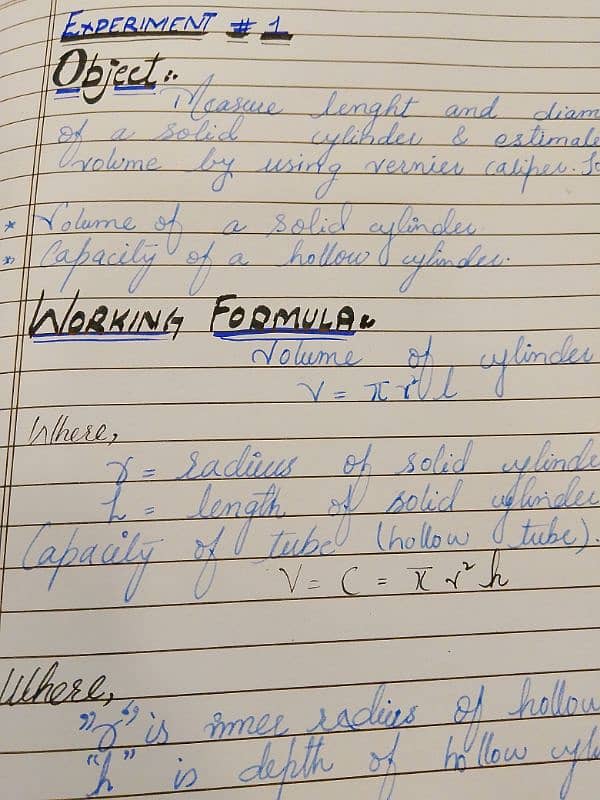 EXPERIMENT # 1
Object:.
Measure lenght and diam
of a solid cylinder & estimate
volume by using vernier caliper.
* Volume of a solid cylinder.
* Capacity of a hollow cylinder.
WORKING FORMULA:
Volume of cylinder
V = π r² l
Where,
r = radius of solid cylinde
h = length of solid cylinder
Capacity of tube (hollow tube).
V = C = π r² h
Where,
"r" is inner radius of hollow
"h" is depth of hollow cyl